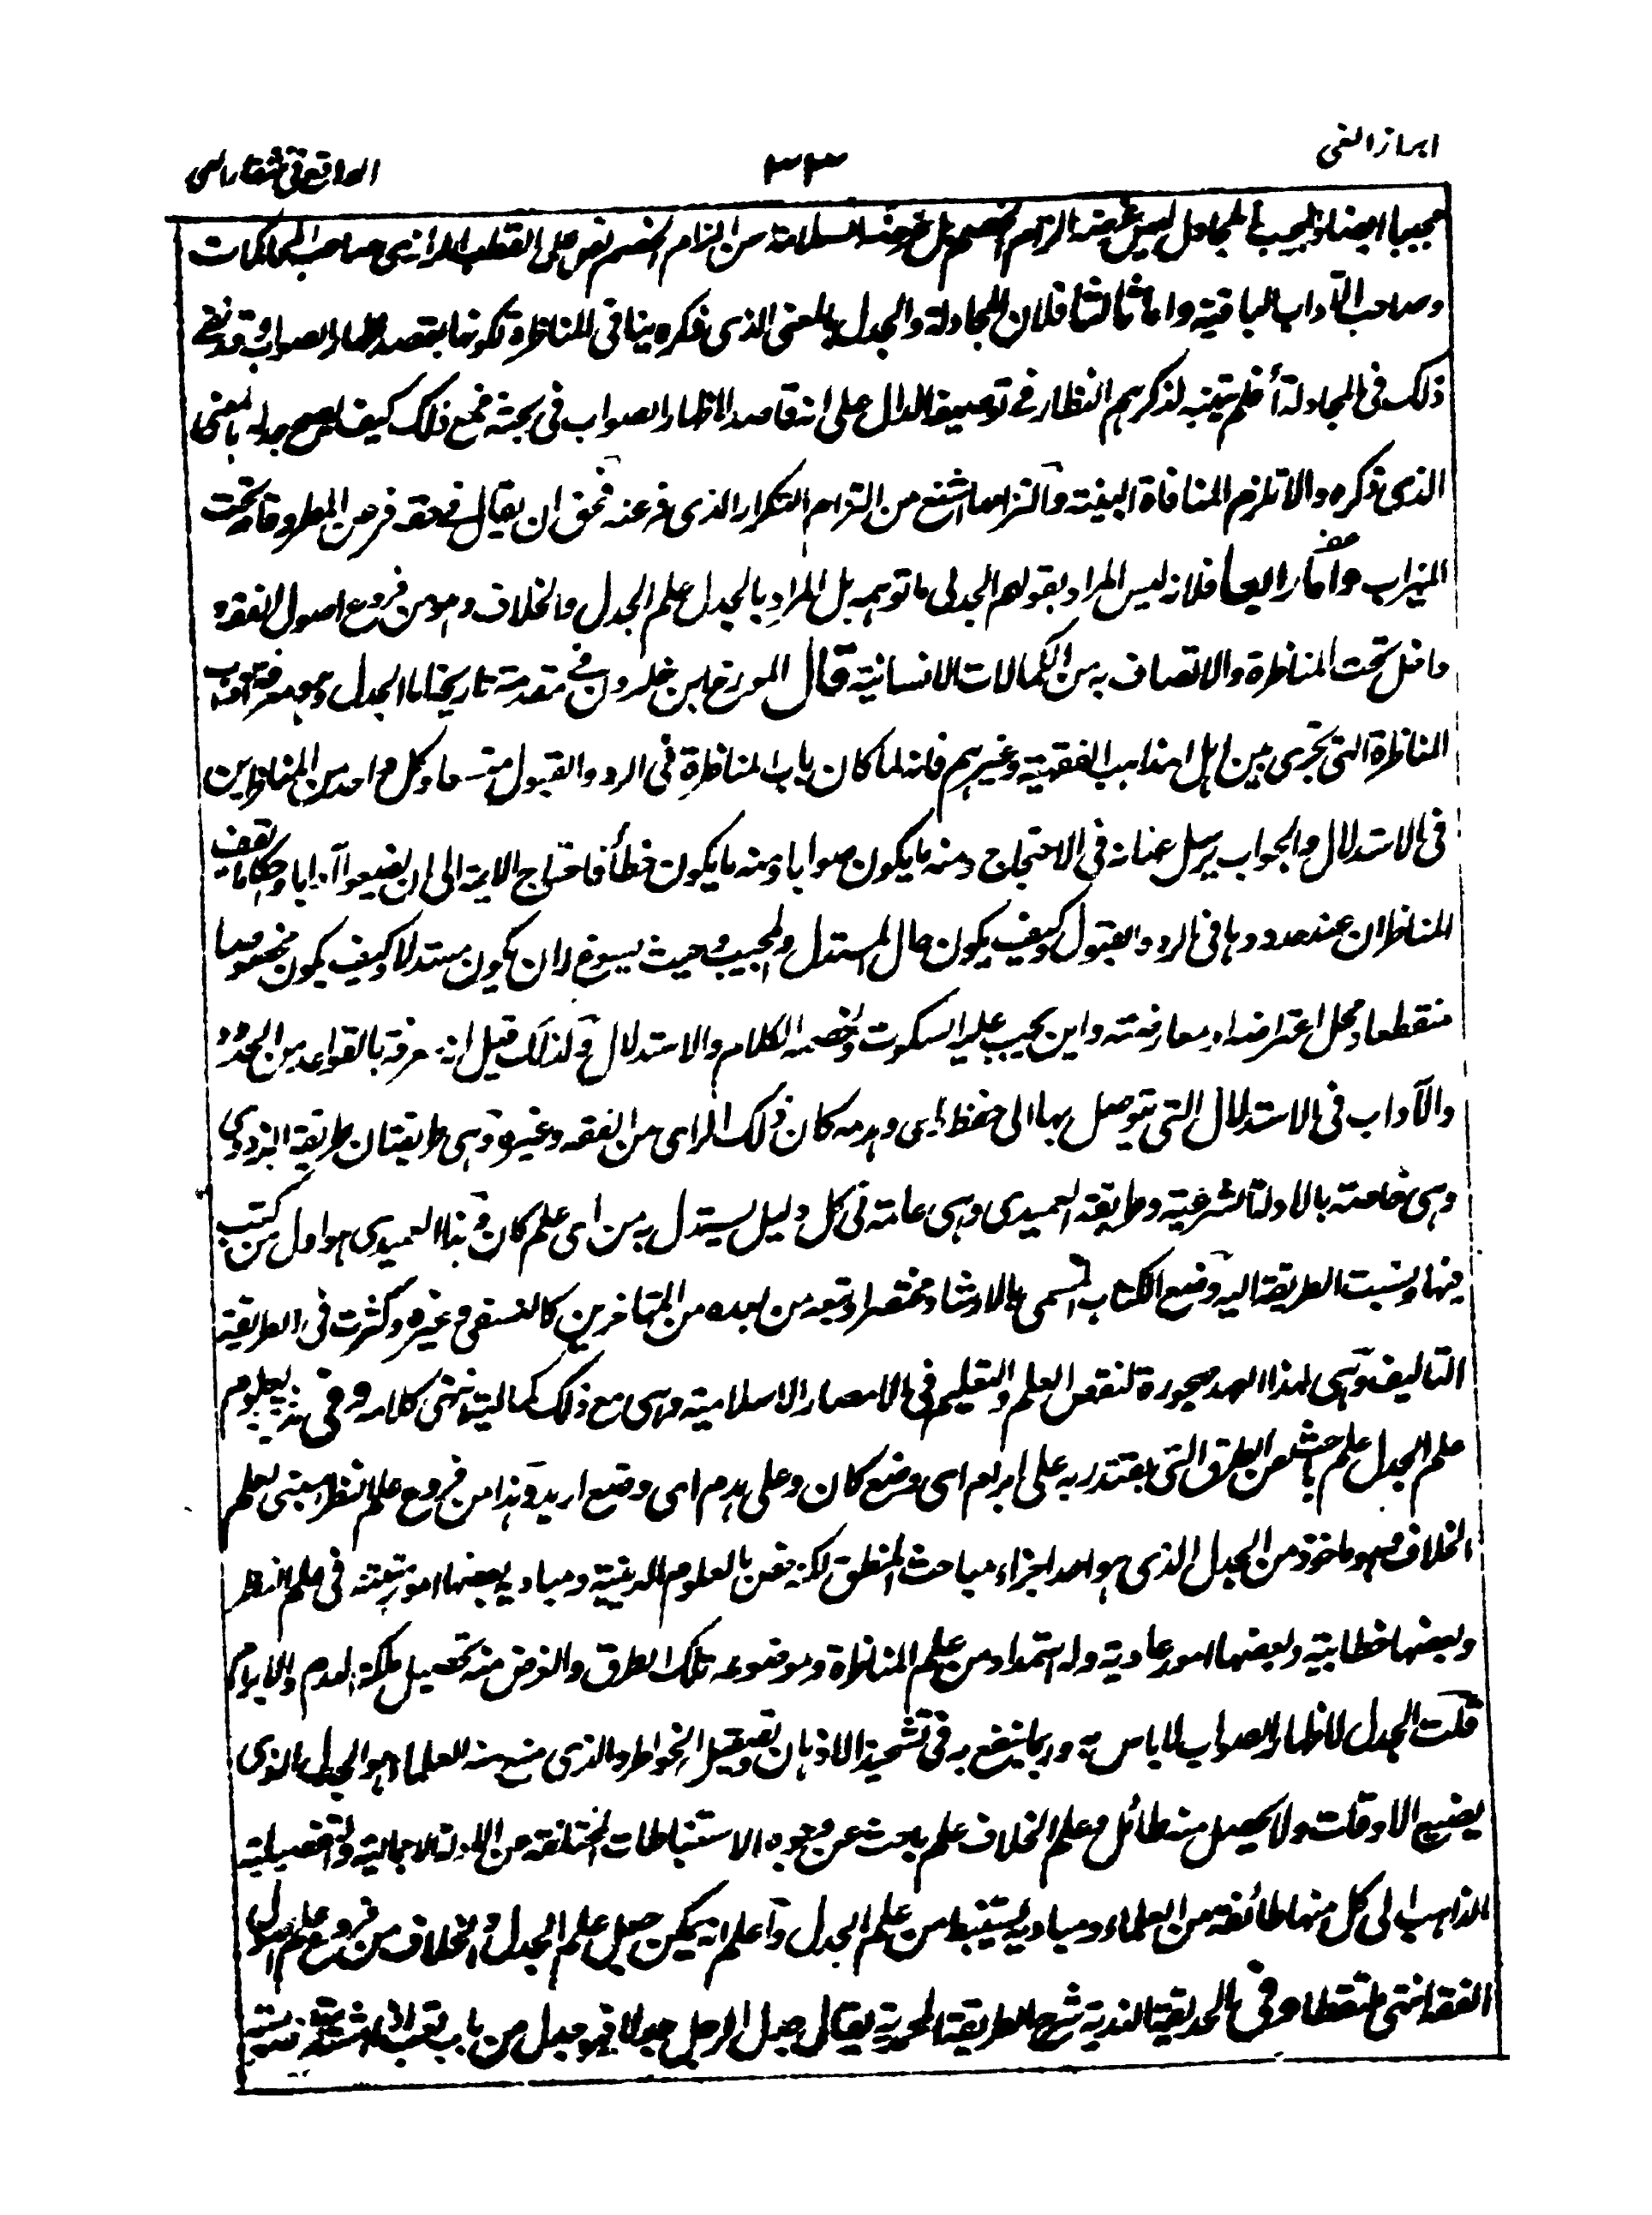 ابراز الغی
٣٣
الواقع فی شفاء العی
مجیبا ایضا والمجیب المجادل لیس غرضه الزام الخصم بل غرضه السلامة من الزام الخصم نص علی القطب الرازی صاحب المحاکمات
وصاحب الآداب الباقیة واما ثالثا فلان المجادلة والجدل بالمعنی الذی ذکره ینافی المناظرة لکونها بقصد اظهار الصواب وقد نفی
ذلک فی المجادلة أفلم یتنبه لذکرهم النظار فی توصیفه الدال علی انه قاصد لاظهار الصواب فی بحثه فمع ذلک کیف یصح جدله بالمعنی
الذی ذکره والا تلزم المنافاة البینة والتزامها اشنع من التزام التکرار الذی فر عنه فحق ان یقال فی حقه فر من المطر وقام تحت
المیزاب واما رابعا فلانه لیس المراد بقولهم الجدلی ما توهمه بل المراد بالجدل علم الجدل والخلاف وهو من فروع اصول الفقه و
داخل تحت المناظرة والاتصاف به من الکمالات الانسانیة قال المورخ ابن خلدون فی مقدمة تاریخه اما الجدل وهو معرفة آداب
المناظرة التی تجری بین اهل المذاهب الفقهیة وغیرهم فانه لما کان باب المناظرة فی الرد والقبول متسعا وکل واحد من المناظرین
فی الاستدلال والجواب یرسل عنانه فی الاحتجاج ومنه ما یکون صوابا ومنه ما یکون خطأ فاحتاج الایمة الی ان یضعوا آدابا واحکاما یقف
المناظران عند حدودها فی الرد والقبول وکیف یکون حال المستدل والمجیب وحیث یسوغ له ان یکون مستدلا وکیف یکون مخصوصا
منقطعا ومحل اعتراضه او معارضته واین یجیب علیه السکوت ولخصمه الکلام والاستدلال ولذلک قیل انه معرفة بالقواعد من الحدود
والآداب فی الاستدلال التی یتوصل بها الی حفظ رای وهدمه کان ذلک الرای من الفقه وغیره وهی طریقتان طریقة البزدوی
وهی خاصة بالادلة الشرعیة وطریقة العمیدی وهی عامة فی کل دلیل یستدل به من ای علم کان وهذا العمیدی هو اول من کتب
فیها ونسبت الطریقة الیه وضع الکتاب المسمی بالارشاد مختصرا وتبعه من بعده من المتاخرین کالنسفی وغیره وکثرت فی الطریقة
التالیف وهی لهذا العهد مهجورة لنقص العلم والتعلیم فی الامصار الاسلامیة وهی مع ذلک کمالیة انتهی کلامه وفی مدینة العلوم
علم الجدل علم باحث عن الطرق التی یقتدر به علی ابرام ای وضع کان وعلی هدم ای وضع ارید وهذا من فروع علم النظر مبنی لعلم
الخلاف وهو ماخوذ من الجدل الذی هو احد اجزاء مباحث المنطق لکنه یعین بالعلوم الدینیة ومبادیه بعضها امور مبینة فی علم النظر
وبعضها خطابیة وبعضها امور عادیة وله استمداد من علم المناظرة وموضوعه تلک الطرق والغرض منه تحصیل ملکة الهدم والابرام
قلت الجدل لاظهار الصواب لا باس به وربما ینتفع به فی تشحیذ الاذهان وتصقیل الخواطر والذی منع منه العلماء هو الجدل الذی
یضیع الاوقات ولا یحصل منه طائل وعلم الخلاف علم باحث عن وجوه الاستنباطات المختلفة من الادلة الاجمالیة والتفصیلیة
الذاهب الی کل منها طائفة من العلماء ومبادیه یستنبط من علم الجدل واعلم انه یمکن جعل علم الجدل والخلاف من فروع علم اصول
الفقه انتهی ملتقطا وفی الحدیقة الندیة شرح الطریقة المحمدیة یقال جدل الرجل جدلا فهو جدل من باب تعب اذا اشتدت خصومته